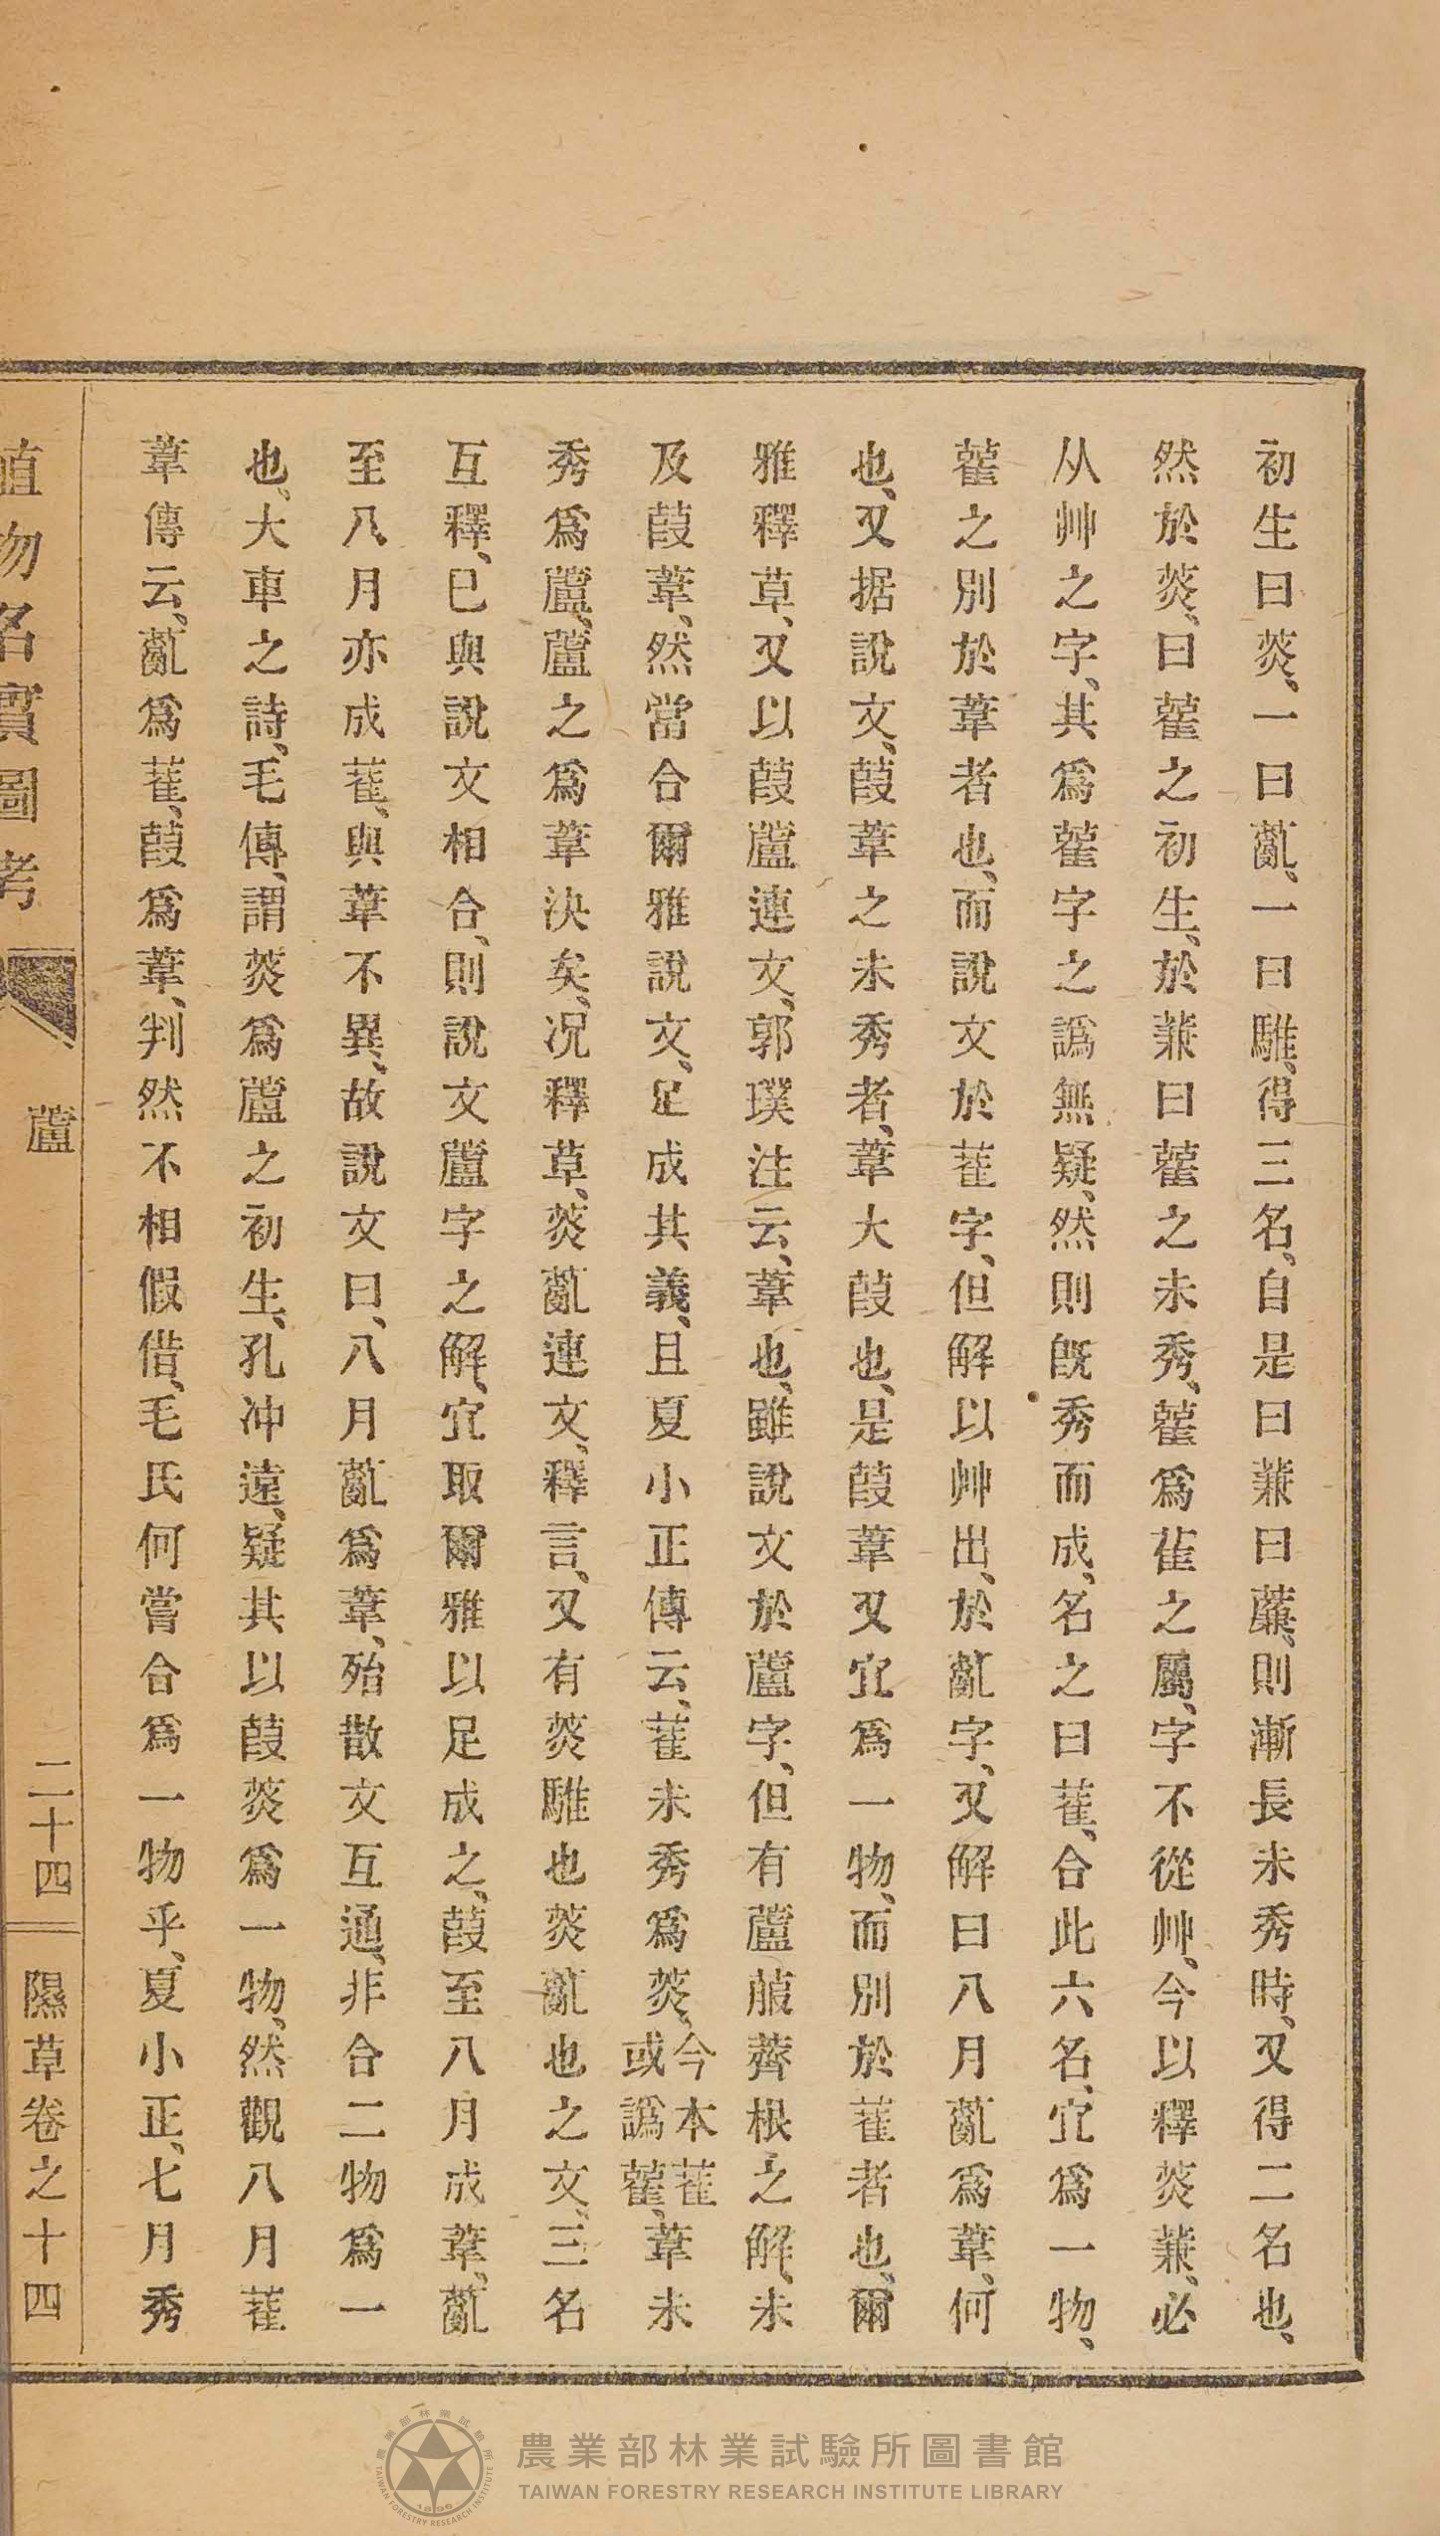 初生曰菼、一曰薍、一曰騅、得三名、自是曰蒹曰薕、則漸長未秀時、又得二名也、
然於菼、曰雚之初生、於蒹曰雚之未秀、雚爲萑之屬、字不從艸、今以釋菼蒹、必
从艸之字、其爲雚字之譌無疑、然則旣秀而成、名之曰萑、合此六名、宜爲一物、
雚之別於葦者也、而說文於萑字、但解以艸出、於薍字、又解曰八月薍爲葦、何
也、又据說文、葭葦之未秀者、葦大葭也、是葭葦又宜爲一物、而別於萑者也、爾
雅釋草、又以葭蘆連文、郭璞注云、葦也、雖說文於蘆字、但有蘆菔薺根之解、未
及葭葦、然當合爾雅說文、足成其義、且夏小正傳云、萑未秀爲菼、今本萑或譌雚、葦未
秀爲蘆、蘆之爲葦決矣、況釋草、菼薍連文、釋言、又有菼騅也菼薍也之文、三名
互釋、已與說文相合、則說文蘆字之解、宜取爾雅以足成之、葭至八月成葦、薍
至八月亦成萑、與葦不異、故說文曰、八月薍爲葦、殆散文互通、非合二物爲一
也、大車之詩、毛傳、謂菼爲蘆之初生、孔冲遠、疑其以葭菼爲一物、然觀八月萑
葦傳云、薍爲萑、葭爲葦、判然不相假借、毛氏何嘗合爲一物乎、夏小正、七月秀
植物名實圖考 蘆 二十四 隰草卷之十四
農業部林業試驗所圖書館
TAIWAN FORESTRY RESEARCH INSTITUTE LIBRARY